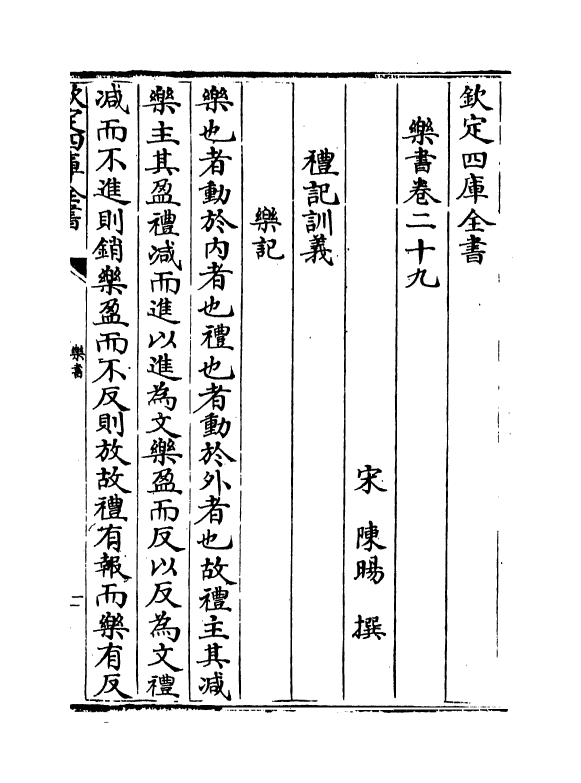 欽定四庫全書
樂書卷二十九
宋 陳暘 撰
禮記訓義
樂記
樂也者動於內者也禮也者動於外者也故禮主其減
樂主其盈禮減而進以進為文樂盈而反以反為文禮
減而不進則銷樂盈而不反則放故禮有報而樂有反
欽定四庫全書
樂書
一